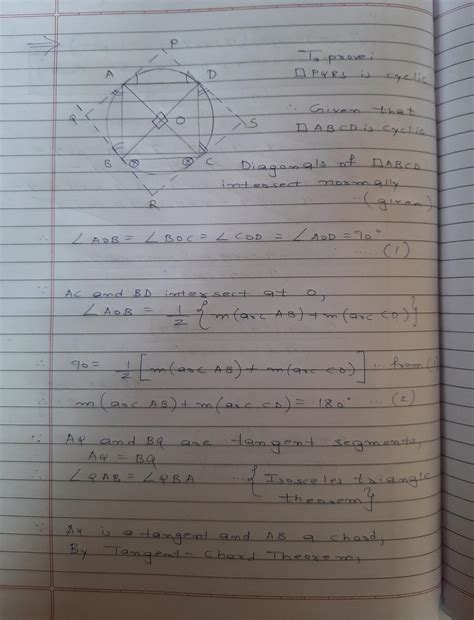 P
To prove:
□PQRS is cyclic
A D
∴ Given that
□ABCD is cyclic
Q O S
B C
Diagonals of □ABCD
intersect normally
R
...(given)
∴ ∠AOB = ∠BOC = ∠COD = ∠AOD = 90°
.... (1)
∴ AC and BD intersect at O,
∠AOB = 1/2 {m(arc AB) + m(arc CD)}
∴ 90 = 1/2 [m(arc AB) + m(arc CD)] ... from (1)
∴ m(arc AB) + m(arc CD) = 180° ... (2)
∵ AQ and BQ are tangent segments,
AQ = BQ
∴ ∠QAB = ∠QBA ...{Isosceles triangle
theorem}
∵ AQ is a tangent and AB a chord,
By Tangent-Chord Theorem,